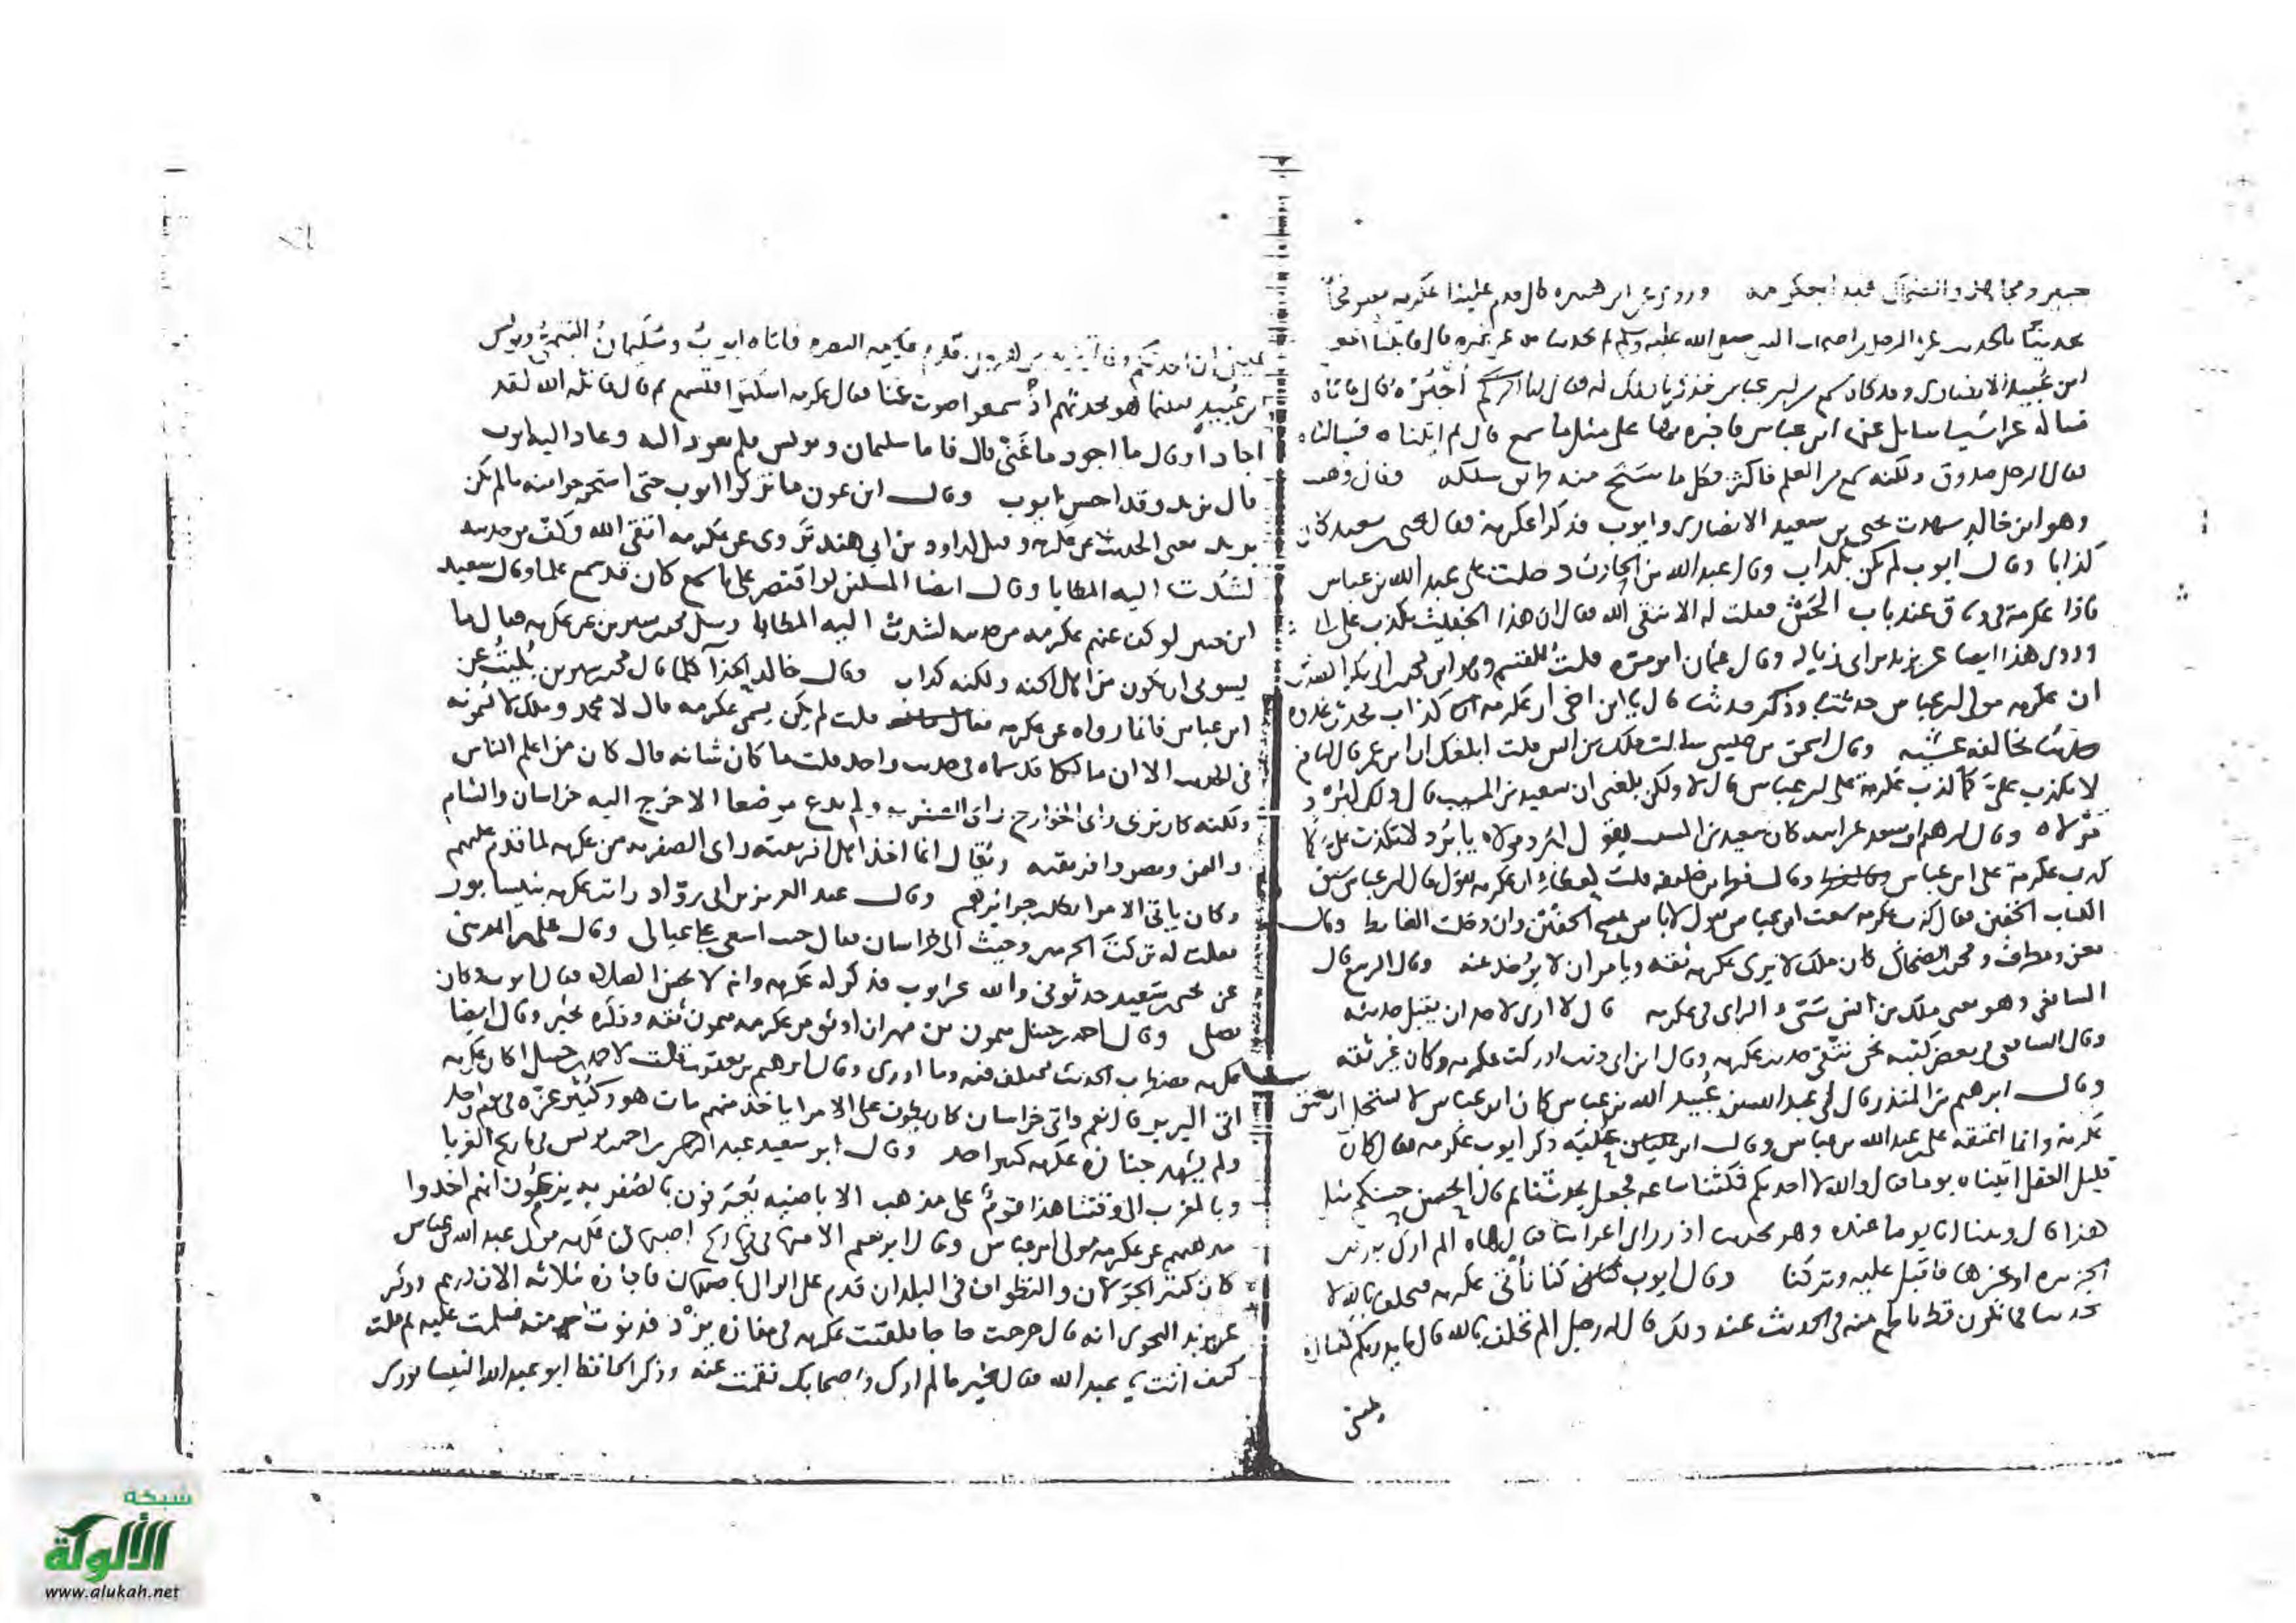 جبير ومجاهد والضحاك عكرمه وروى عن ابن هبيره قال قدم علينا عكرمه
يحدثنا بالحديث عن الرجل من اصحاب النبي صلى الله عليه وسلم ثم يحدثنا به عن غيره قال فاتينا
ابن عبيد الانصاري وقد كان سمع من ابن عباس فذكرنا ذلك له فقال انا اخبره لكم قال فاتاه
فساله عن اشيا سايل عنها ابن عباس فاخبره بها على مثل ما سمع قال ثم اتيناه فسالناه
فقال الرجل صدوق ولكنه سمع من العلم فاكثر فكل ما سنح منه طريق سلكه وقال وهب
وهو ابن خالد شهدت يحيى بن سعيد الانصاري وايوب فذكرا عكرمة فقال يحيى بن سعيد كان
كذابا وقال ايوب لم يكن بكذاب وقال عبد الله بن الحارث دخلت على علي بن عبد الله بن عباس
فاذا عكرمة في وثاق عند باب الحش فقلت له الا تتقي الله فقال ان هذا الخبيث يكذب على ابي
وروى هذا ايضا عن يزيد بن ابي زياد وقال عثمان بن مره قلت للقسم
ان عكرمه مولى ابن عباس حدثنا قال يا ابن اخي ان عكرمه كذاب يحدث غدوه
حديثا يخالفه عشيه وقال اسحق بن عيسى سالت ملك بن انس قلت ابلغك ان ابن عمر قال لنافع
لا تكذب علي كما كذب عكرمة على ابن عباس قال لا ولكن بلغني ان سعيد بن المسيب قال ذلك لبرد
مولاه وقال ابرهيم بن سعد عن ابيه كان سعيد بن المسيب يقول لبرد مولاه يا برد لا تكذب علي كما
كذب عكرمة على ابن عباس وقال فطر بن خليفه قلت لعطاء ان عكرمه يقول قال ابن عباس سبق
الكتاب الخفين فقال كذب عكرمه سمعت ابن عباس يقول لا باس بمسح الخفين وان دخلت الغايط وقال
معن ومطرف ومحمد بن الضحاك كان ملك لا يرى عكرمه ثقه ويامر ان لا يوخذ عنه وقال الربيع قال
الشافعي وهو يعني ملك بن انس سيئ الراي في عكرمه قال لا ارى لاحد ان يقبل حديثه
وقال الشافعي في بعض كتبه نحن نتقي حديث عكرمه وقال ابن ابي ذئب ادركت عكرمه وكان غير ثقه
وقال ابرهيم بن المنذر قال لي عبد الله بن عبيد الله بن عباس كان ابن عباس لا يستحل ان يعتق
عكرمة وانما اعتقه علي بن عبد الله بن عباس وقال ابن عليه ذكر ايوب عكرمه فقال كان
قليل العقل اتيناه يوما فقال والله لا احدثكم فمكثنا ساعه فجعل يحدثنا ثم قال ايحسن حسنكم مثل
هذا قال وبينا انا يوما عنده وهو يحدث اذ راى اعرابيا فقال هاه الم ارك بارض
الجزيره او غيرها فاقبل عليه وتركنا وقال ايوب كنا ناتي عكرمه فيحلف بالله لا
يحدثنا فما نكون قط باطمع منه في الحديث عند ذلك فقال له رجل الم تحلف بالله قال
يمين ان احدثكم قدم عكرمه البصره فاتاه ايوب وسليمان التيمي ويونس
ابن عبيد فبينما هو يحدثهم اذ سمعوا صوت غنا فقال عكرمه اسكتوا فنسمع ثم قال قاتله الله لقد
اجاد او قال ما اجود ما غنى قال فاما سليمان ويونس فلم يعودا اليه وعاد اليه ايوب
قال يزيد وقد احسن ايوب وقال ابن عون ما تركوا ايوب حتى استخرجوا منه ما لم يكن
يريد يعني الحديث عن عكرمه وقيل لداود بن ابي هند تروى عن عكرمه اتق الله وكف من حديثه
لشدت اليه المطايا وقال ايضا المسلمين لو اقتصر على ما سمع كان قد سمع علما وقال سعيد
ابن جبير لو كف عنهم عكرمه من حديثه لشدت اليه المطايا وسئل محمد بن سيرين عن عكرمه فقال ما
يسوءني ان يكون من اهل الجنه ولكنه كذاب وقال خالد الحذا كلما قال محمد بن سيرين نبيت عن
ابن عباس فانما رواه عن عكرمه قلت لم يكن يسمي عكرمه قال لا محمد وملك لا يسمونه
في الحديث الا ان مالكا قد سماه في حديث واحد قلت ما كان شانه قال كان من اعلم الناس
ولكنه كان يرى راى الخوارج راى الصفريه ولم يدع موضعا الا خرج اليه خراسان والشام
واليمن ومصر وافريقيه ويقال انما اخذ اهل افريقيه راى الصفريه من عكرمه لما قدم عليهم
وكان ياتي الامرا يطلب جوايزهم وقال عبد العزيز بن ابي رواد رايت عكرمه بنيسابور
فقلت له تركت الحرمين وجيت الى خراسان فقال جيت اسعى على عيالي وقال علي بن المديني
عن يحيى بن سعيد حدثوني والله عن ايوب فذكر له عكرمه وانه لا يحسن الصلاه فقال ايوب وكان
يصلي وقال احمد بن حنبل ميمون بن مهران اوثق من عكرمه ميمون ثقه وذكره بخير وقال ايضا
عكرمه مضطرب الحديث مختلف فيه وما ادري وقال ابرهيم بن يعقوب قلت لاحمد بن حنبل اكان عكرمه
اتى البربر قال نعم واتى خراسان كان يطوف على الامرا ياخذ منهم مات هو وكثير عزه في يوم واحد
ولم يشهد جنازة عكرمه كبير احد وقال ابو سعيد عبد الرحمن بن احمد بن يونس في تاريخ الغربا
وبالمغرب الى وقتنا هذا قوم على مذهب الاباضيه يعرفون بالصفريه يزعمون انهم اخذوا
مذهبهم عن عكرمه مولى ابن عباس وقال ابو نعيم الاصبهاني في تاريخ اصبهان عكرمه مولى عبد الله بن عباس
كان كثير الجولان والتطواف في البلدان قدم على الوالي باصبهان فاجازه بثلاثه الاف درهم وذكر
عن يزيد النحوي انه قال خرجت حاجا فلقيت عكرمه في مفازه يزد فدنوت منه فسلمت عليه ثم قلت
كيف انت يا عبد الله فقال بخير ما لم ارك واصحابك فقمت عنه وذكر الحافظ ابو عبد الله النيسابوري
شبكة
الألوكة
www.alukah.net